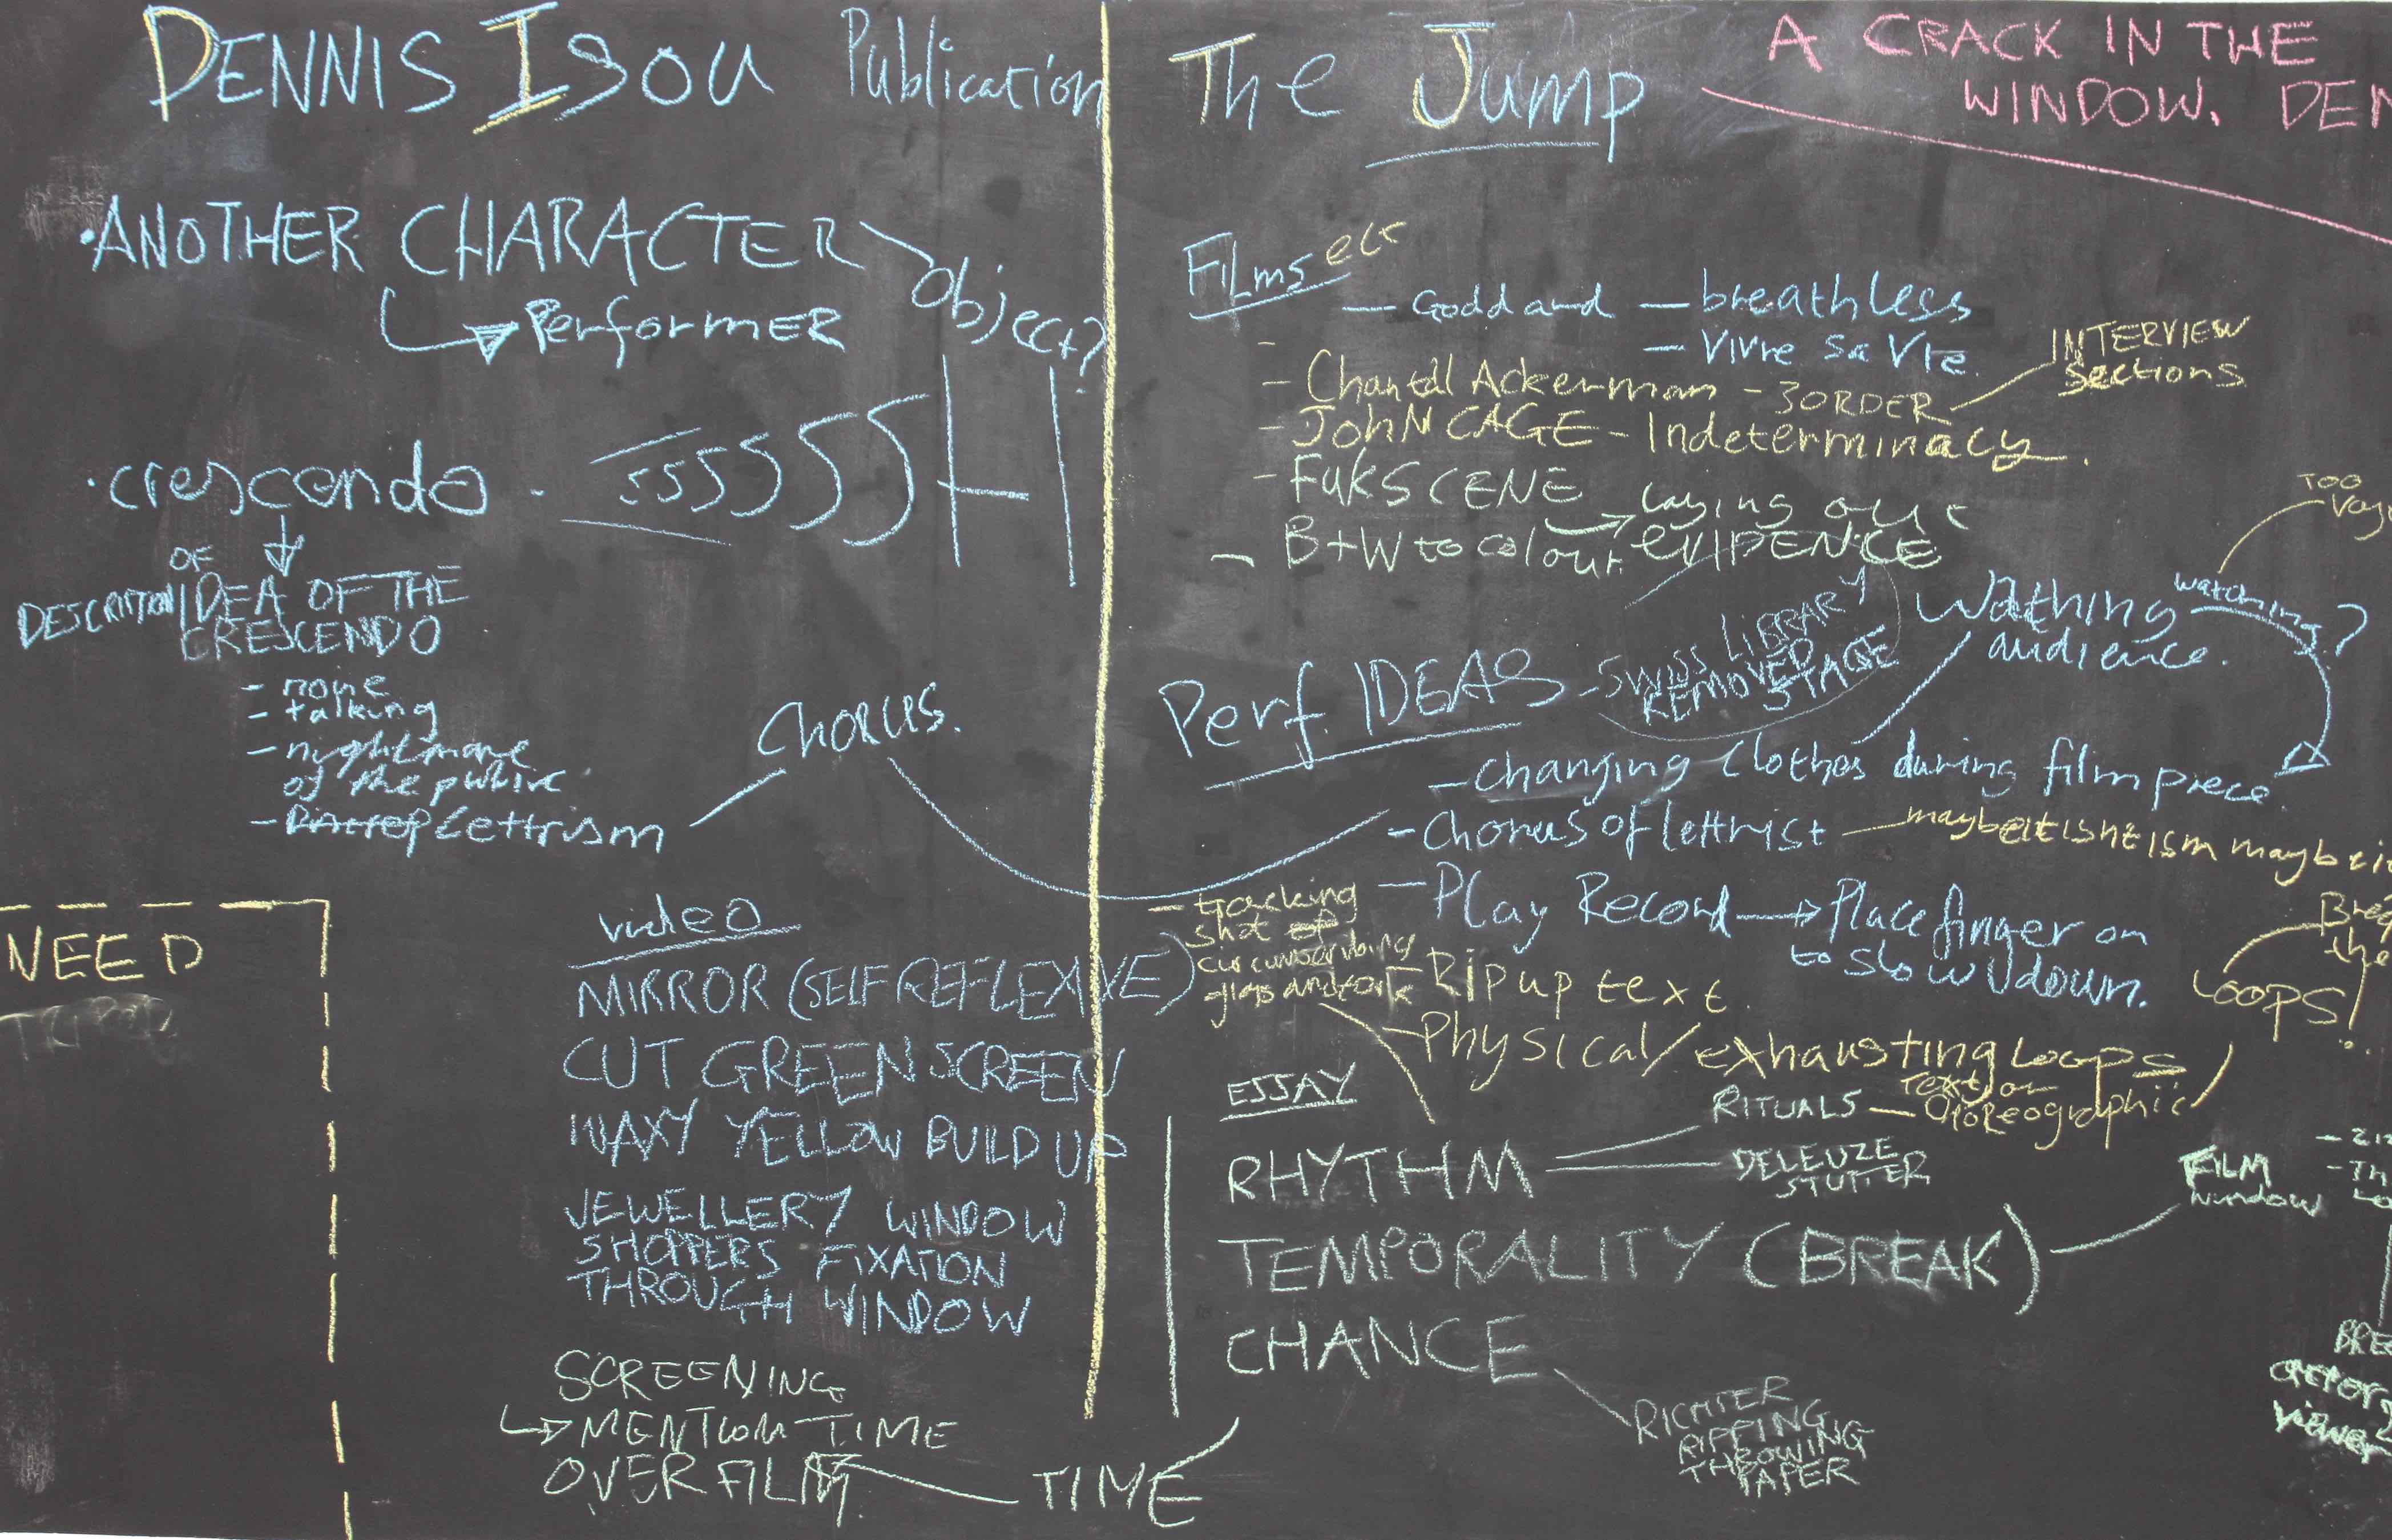 DENNIS ISOU Publication
·ANOTHER CHARACTER
object?
Performer
·crescendo - 555555
OF
DESCRIPTION IDEA OF THE
CRESCENDO
- none
- talking
- nightmare
of the public
- Lettrism
Chorus.
NEED
video
MIRROR (SELF REFLEXIVE)
CUT GREEN SCREEN
WAXY YELLOW BUILD UP
JEWELLERY WINDOW
SHOPPERS FIXATION
THROUGH WINDOW
SCREENING
MENTION TIME
OVER FILM
TIME
The Jump
A CRACK IN THE
WINDOW. DEN
Films etc
- Goddard - breathless
- Vivre sa Vie
INTERVIEW
Sections
- Chantal Ackerman - BORDER
- JOHN CAGE - Indeterminacy.
- FUKSCENE
laying out
- B+W to colour. EVIDENCE
Too
Vag
Perf. IDEAS
- SWISS LIBRARY
REMOVED
STAGE
Wathing watching?
audience.
- changing clothes during film piece
- Chorus of lettrist
maybe it isnt ism maybe i
- Play Record → Place finger on
to slow down.
- tracking
shot of
circumscribing
glass and
Rip up text.
- Physical/exhausting Loops
Text or
Choreographic
Bre
the
LOOPS!
ESSAY
RHYTHM
RITUALS
DELEUZE
STUTTER
TEMPORALITY (BREAK)
FILM
window
- Th
Lo
CHANCE
RICHTER
RIPPING
THROWING
PAPER
BRE
actor
viewer